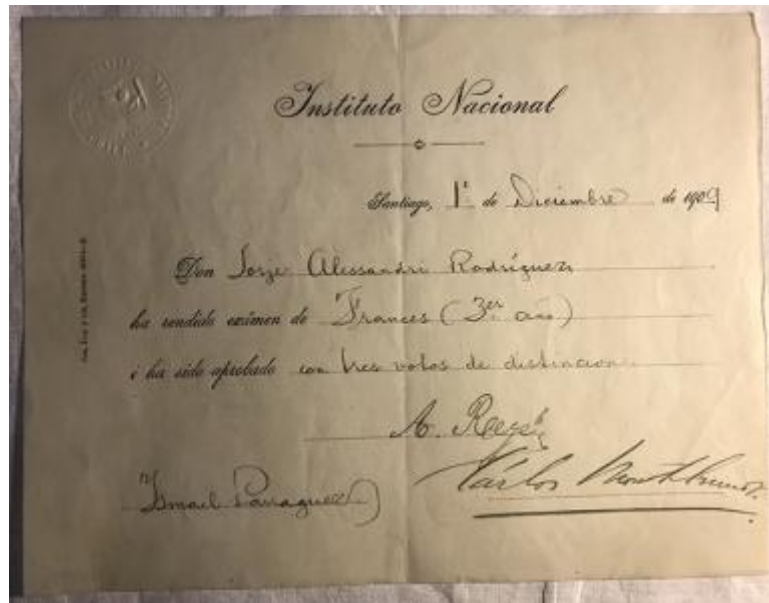 Instituto Nacional
Santiago, 1º de Diciembre de 1909
Don Jorje Alessandri Rodríguez
ha rendido exámen de Frances (3er año)
i ha sido aprobado con tres votos de distincion.
A.
Ismael Parraguez
Cárlos